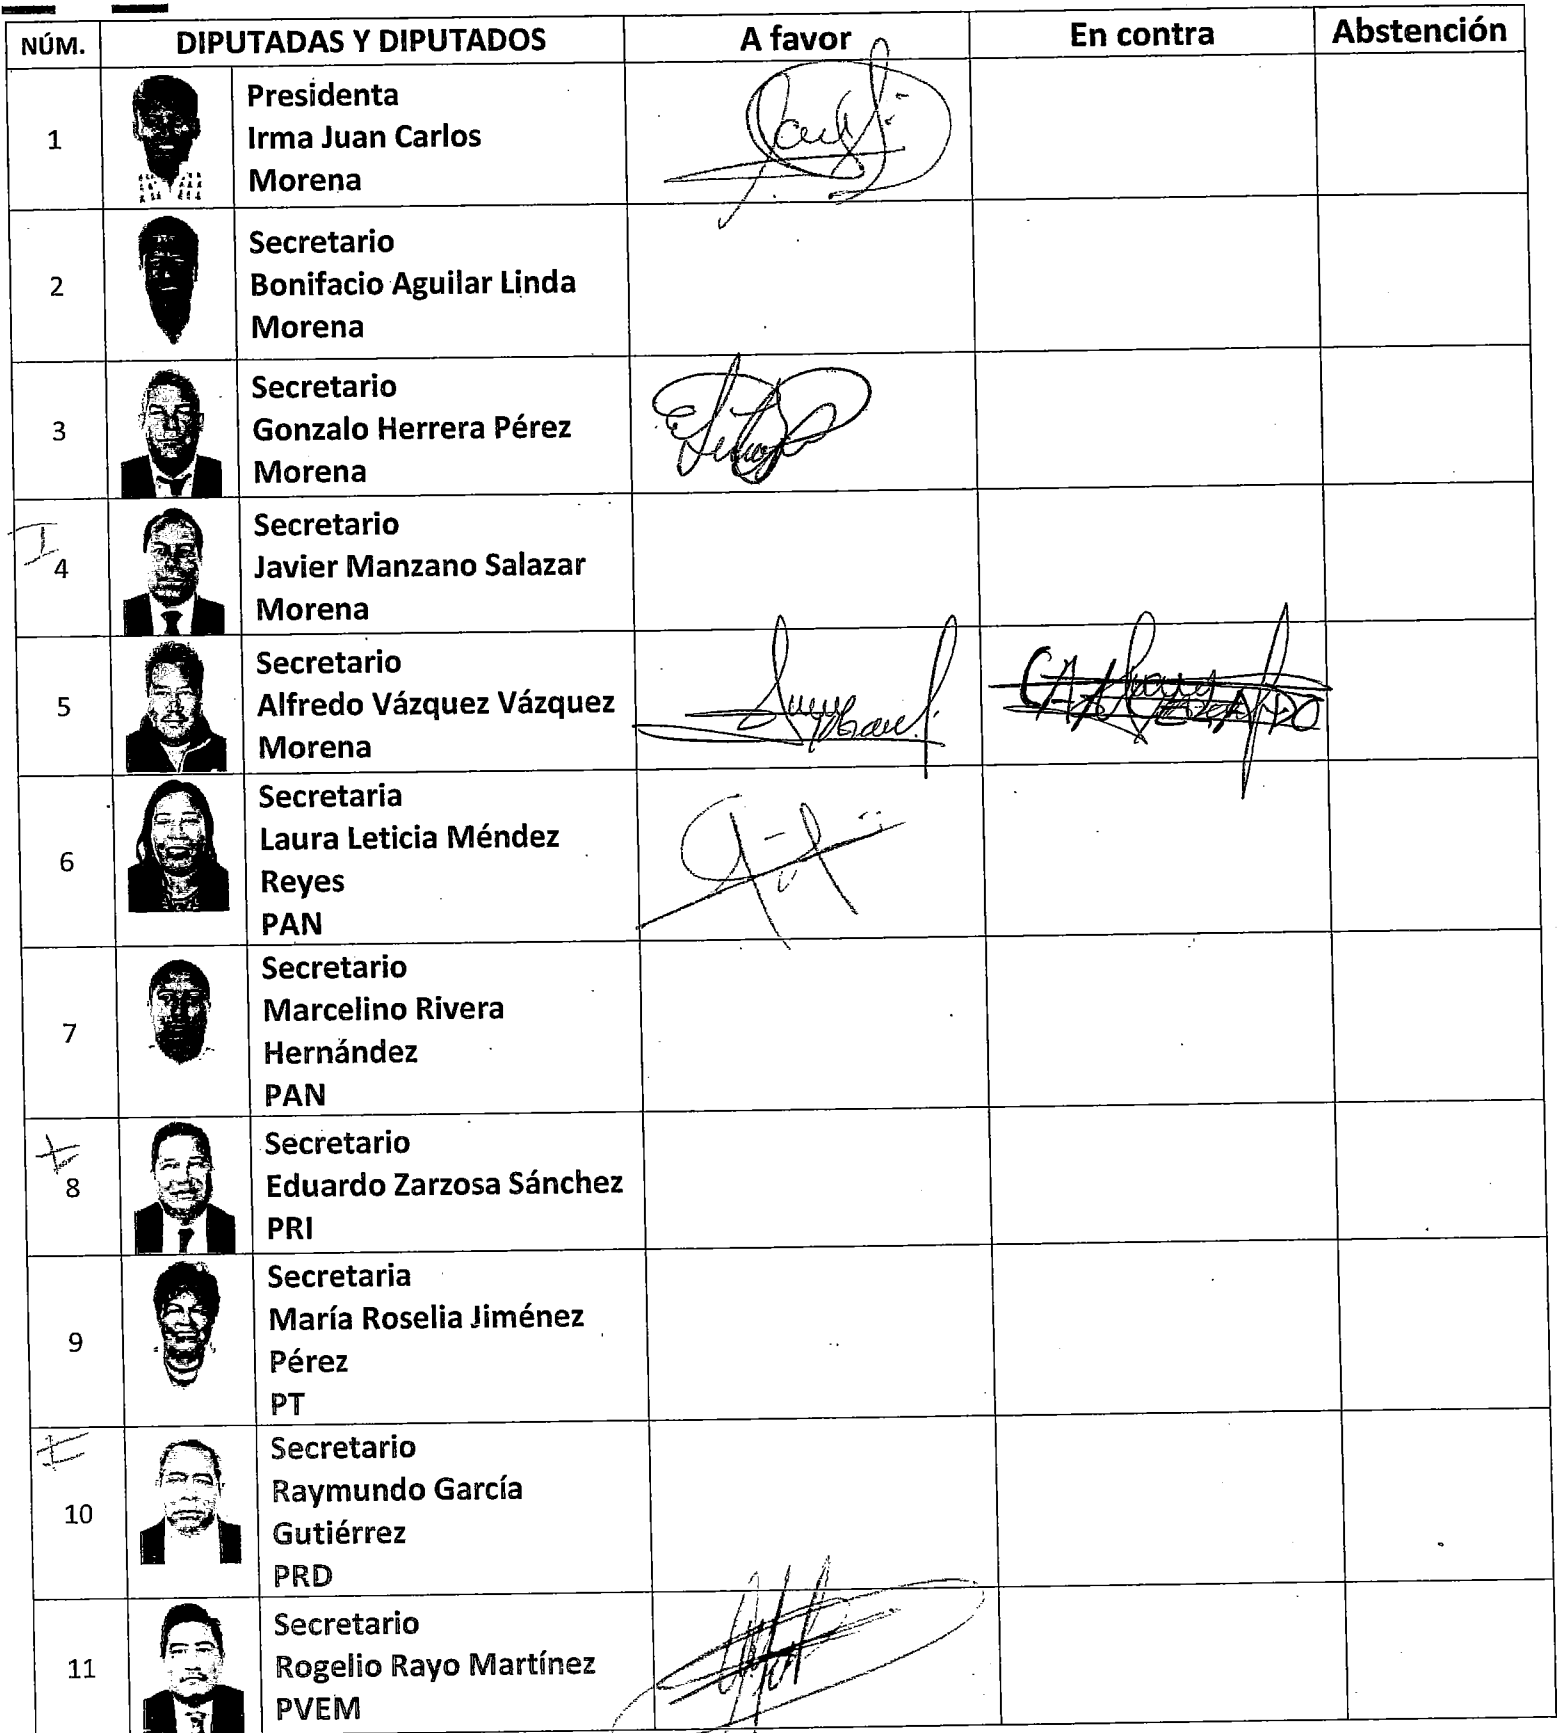 NÚM. DIPUTADAS Y DIPUTADOS A favor En contra Abstención
1
Presidenta
Irma Juan Carlos
Morena
2
Secretario
Bonifacio Aguilar Linda
Morena
3
Secretario
Gonzalo Herrera Pérez
Morena
I
4
Secretario
Javier Manzano Salazar
Morena
5
Secretario
Alfredo Vázquez Vázquez
Morena
CANCELADO
6
Secretaria
Laura Leticia Méndez
Reyes
PAN
7
Secretario
Marcelino Rivera
Hernández
PAN
8
Secretario
Eduardo Zarzosa Sánchez
PRI
9
Secretaria
María Roselia Jiménez
Pérez
PT
10
Secretario
Raymundo García
Gutiérrez
PRD
11
Secretario
Rogelio Rayo Martínez
PVEM